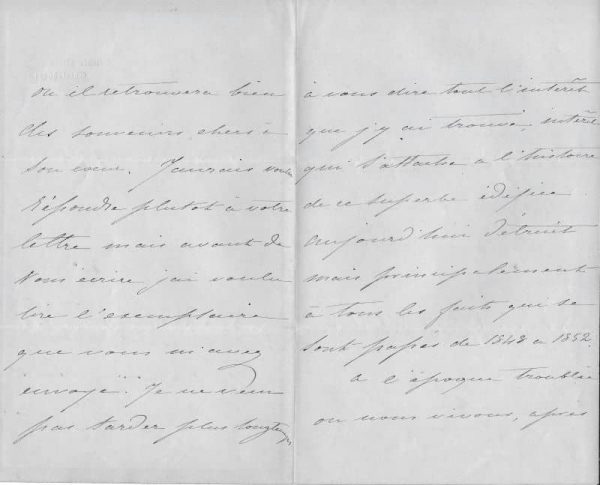 où il retrouvera bien
des souvenirs chers à
son cœur. J'aurais voulu
répondre plutot à votre
lettre mais avant de
vous écrire j'ai voulu
lire l'exemplaire
que vous m'avez
envoyé. Je ne veux
pas tarder plus longtemps
à vous dire tout l'intérêt
que j'y ai trouvé, intérêt
qui s'attache a l'histoire
de ce superbe édifice
aujourd'hui détruit
mais principalement
à tous les faits qui se
sont passés de 1848 a 1852.
a l'époque troublée
ou nous vivons, après